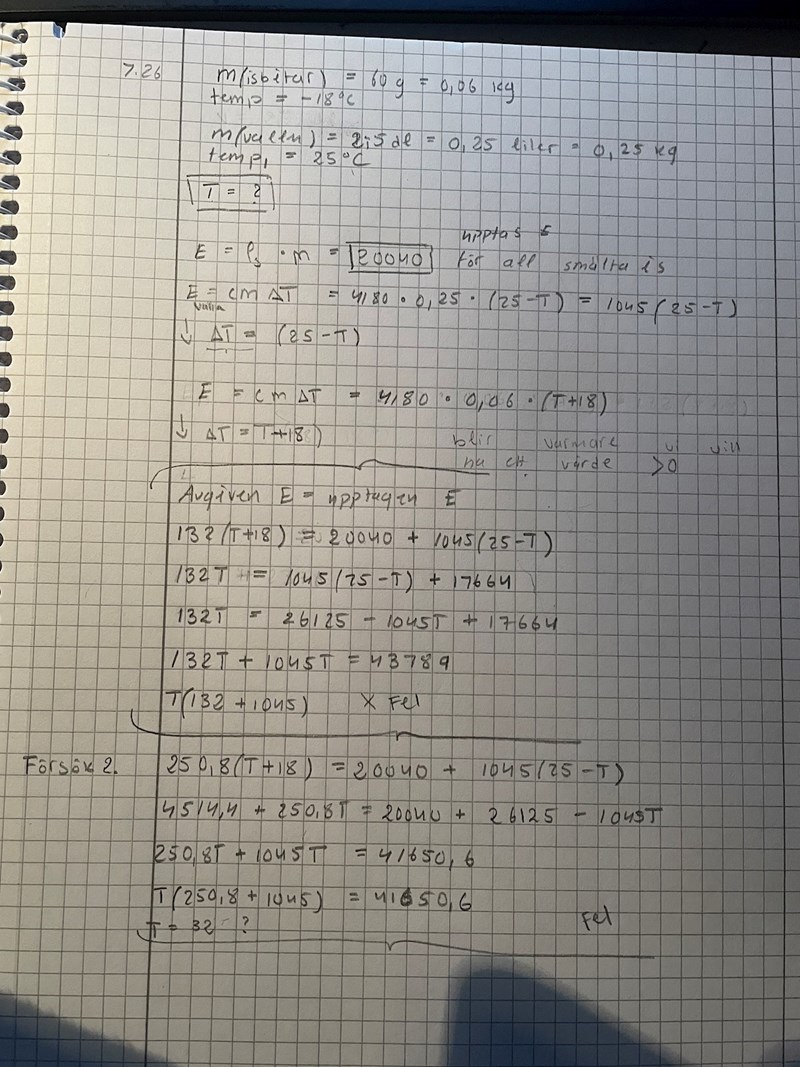 7.26
m(isbitar) = 60 g = 0,06 kg
temp = -18°C
m(vatten) = 2,5 dl = 0,25 liter = 0,25 kg
temp, = 25°C
T = ?
upptas
E = ls · m = 20040 för all smälta is
E = cm ΔT = 4180 · 0,25 · (25-T) = 1045(25-T)
↓ ΔT = (25-T)
E = cm ΔT = 4180 · 0,06 · (T+18)
↓ ΔT = T+18)
blir varmare vi vill
ha ett värde >0
Avgiven E = upptagen E
132(T+18) = 20040 + 1045(25-T)
132T = 1045(25-T) + 17664
132T = 26125 - 1045T + 17664
132T + 1045T = 43789
T(132 + 1045) X Fel
Försök 2. 250,8(T+18) = 20040 + 1045(25-T)
4514,4 + 250,8T = 20040 + 26125 - 1045T
250,8T + 1045T = 41650,6
T(250,8 + 1045) = 41650,6
T = 32 ?
Fel